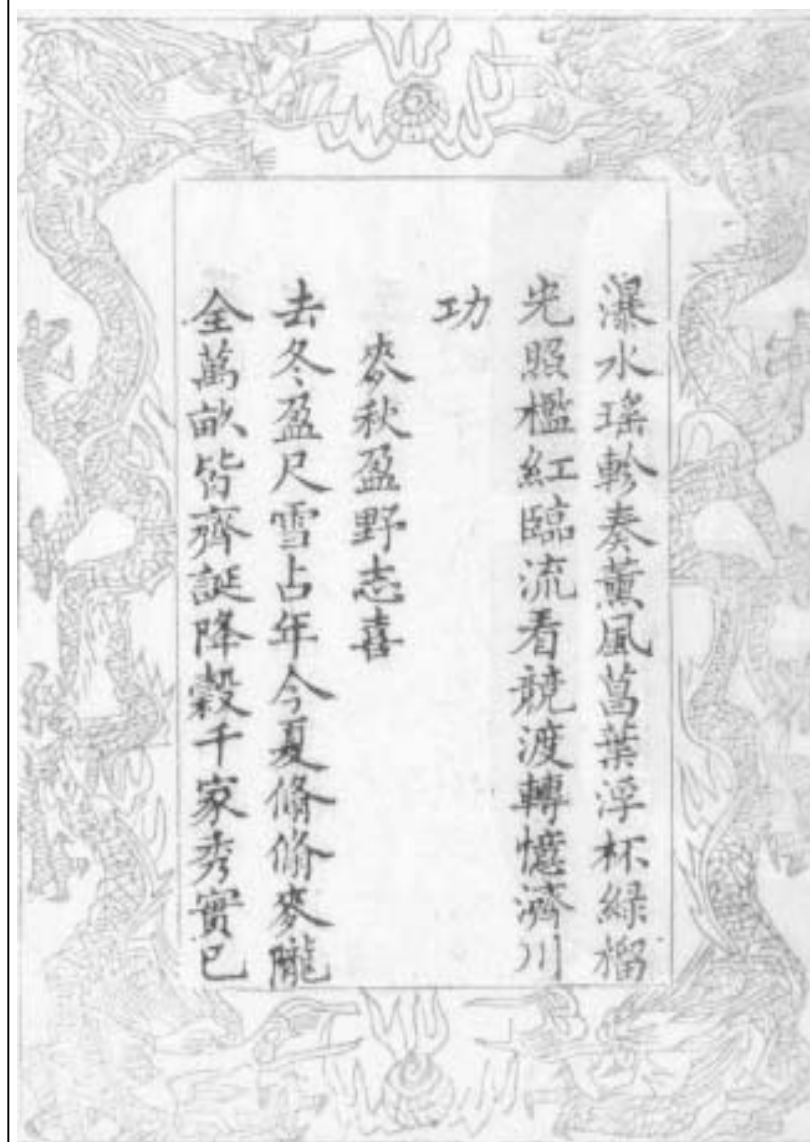 瀑水瑤軫奏薰風菖葉浮杯綠榴
光照檻紅臨流看競渡轉憶濟川
功
麥秋盈野志喜
去冬盈尺雪占年今夏脩脩麥隴
全萬畝皆齊誕降穀千家秀實已